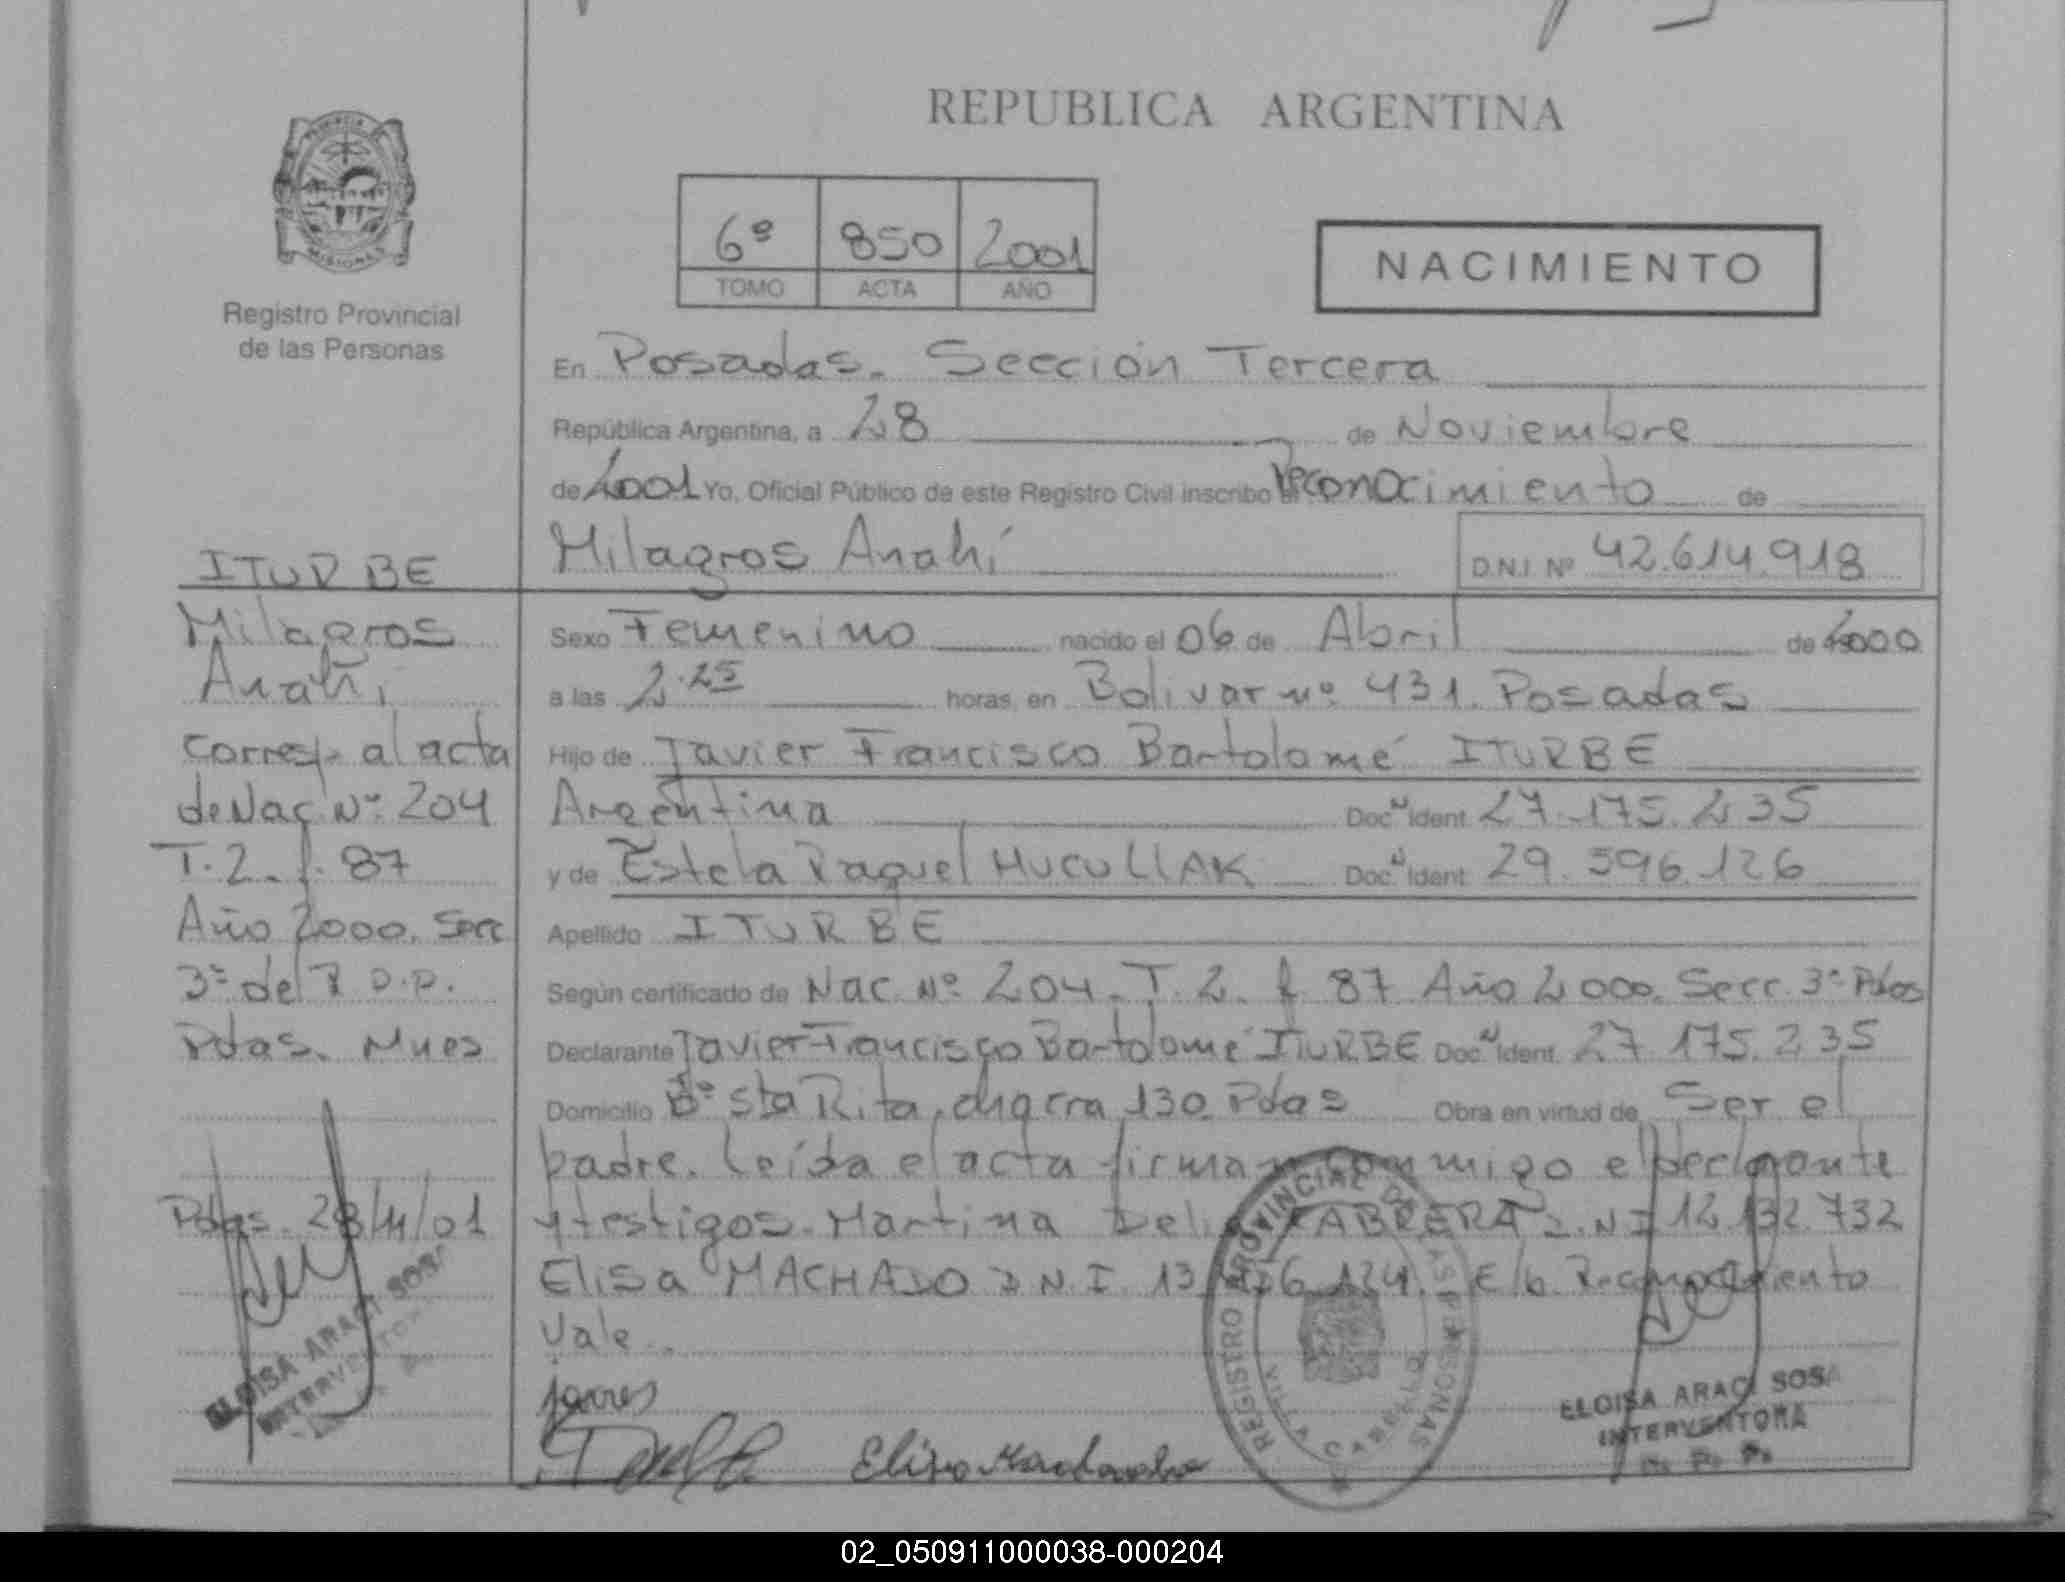 REPUBLICA ARGENTINA
PROVINCIA
MISIONES
Registro Provincial
de las Personas
6º 850 2001
TOMO ACTA AÑO
NACIMIENTO
En Posadas. Sección Tercera
República Argentina, a 28 de Noviembre
de 2001 Yo, Oficial Público de este Registro Civil inscribo el reconocimiento de
Milagros Anahí D.N.I. Nº 42.614.918
Sexo Femenino nacido el 06 de Abril de 2000
a las 2.25 horas, en Bolivar nº 431. Posadas
Hijo de Javier Francisco Bartolomé ITURBE
Argentina Doc. Ident. 27.175.235
y de Estela Raquel HUCULLAK Doc. Ident. 29.596.126
Apellido ITURBE
Según certificado de Nac. Nº 204. T. 2. f. 87 Año 2000. Secc. 3ª Pdas
Declarante Javier Francisco Bartolomé ITURBE Doc. Ident. 27.175.235
Domicilio Bº Sta Rita, chacra 130 Pdas Obra en virtud de Ser el
padre. Leída el acta firman conmigo el declarante
y testigos. Martina Delia CABRERA D.N.I 12.132.732
Elisa MACHADO D.N.I. 13 124. E/b Reconocimiento
Vale.
ITURBE
Milagros
Anahí
corresp. al acta
de Nac. Nº 204
T. 2. f. 87
Año 2000. Secc
3ª del R.P.P.
Pdas. Mnes
Pdas. 28/11/01
ELOISA ARACI SOSA
INTERVENTORA
Elisa Machado
REGISTRO PROVINCIAL DE LAS PERSONAS
VILLA CABELLO
ELOISA ARACI SOSA
INTERVENTORA
R. P. P.
02_050911000038-000204